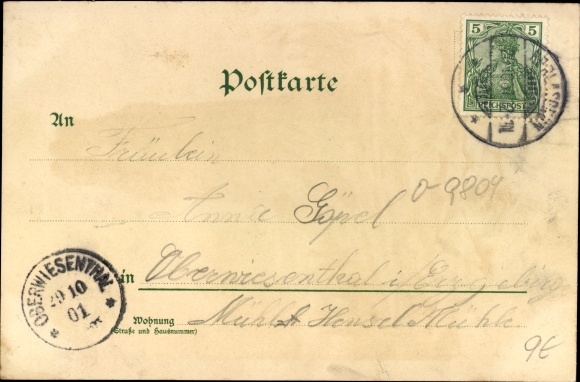 5 5
REICHSPOST
Postkarte
An
Fräulein
O-9804
Annie Göpel
in Oberwiesenthal i/Erzgebirge
OBERWIESENTHAL
29 10
01
Wohnung
(Straße und Hausnummer)
Hensel Mühle
9€